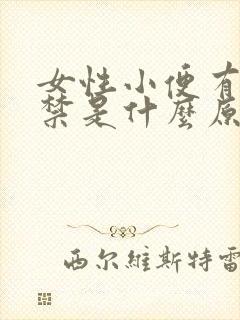 女性小便有
禁是什麼原
西尔維斯特雷